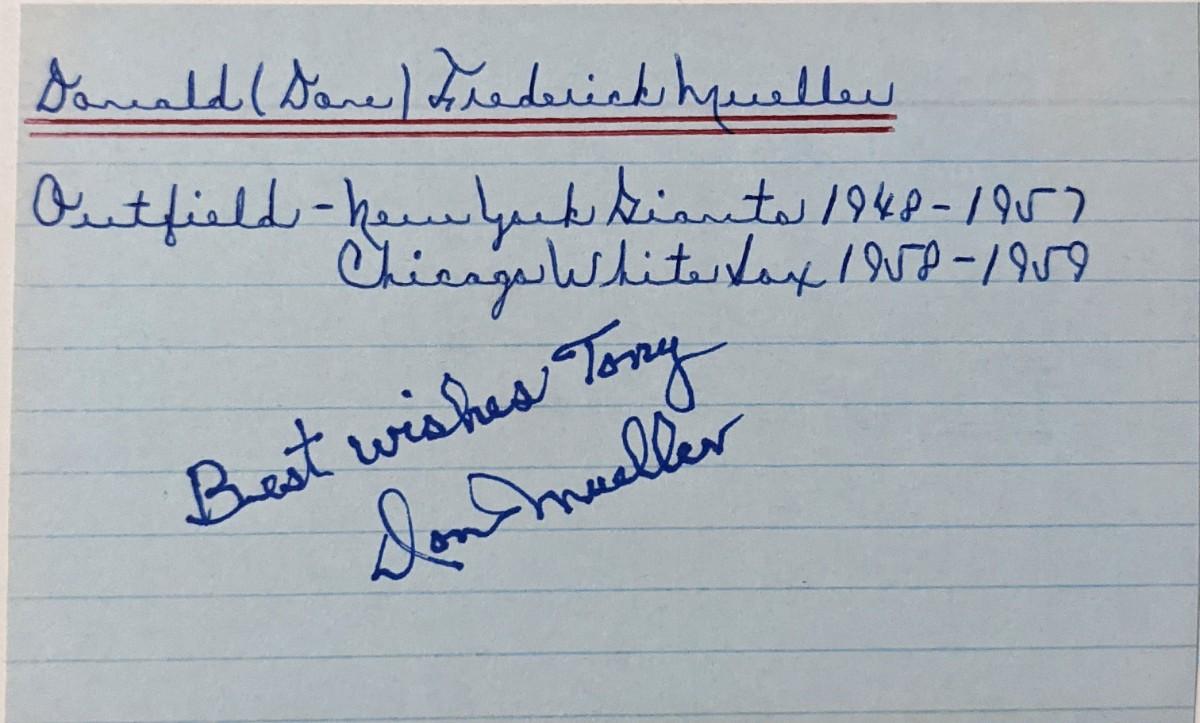 Donald (Don) Frederick Mueller
Outfield - New York Giants 1948 - 1957
Chicago White Sox 1958 - 1959
Best wishes Tony
Don Mueller